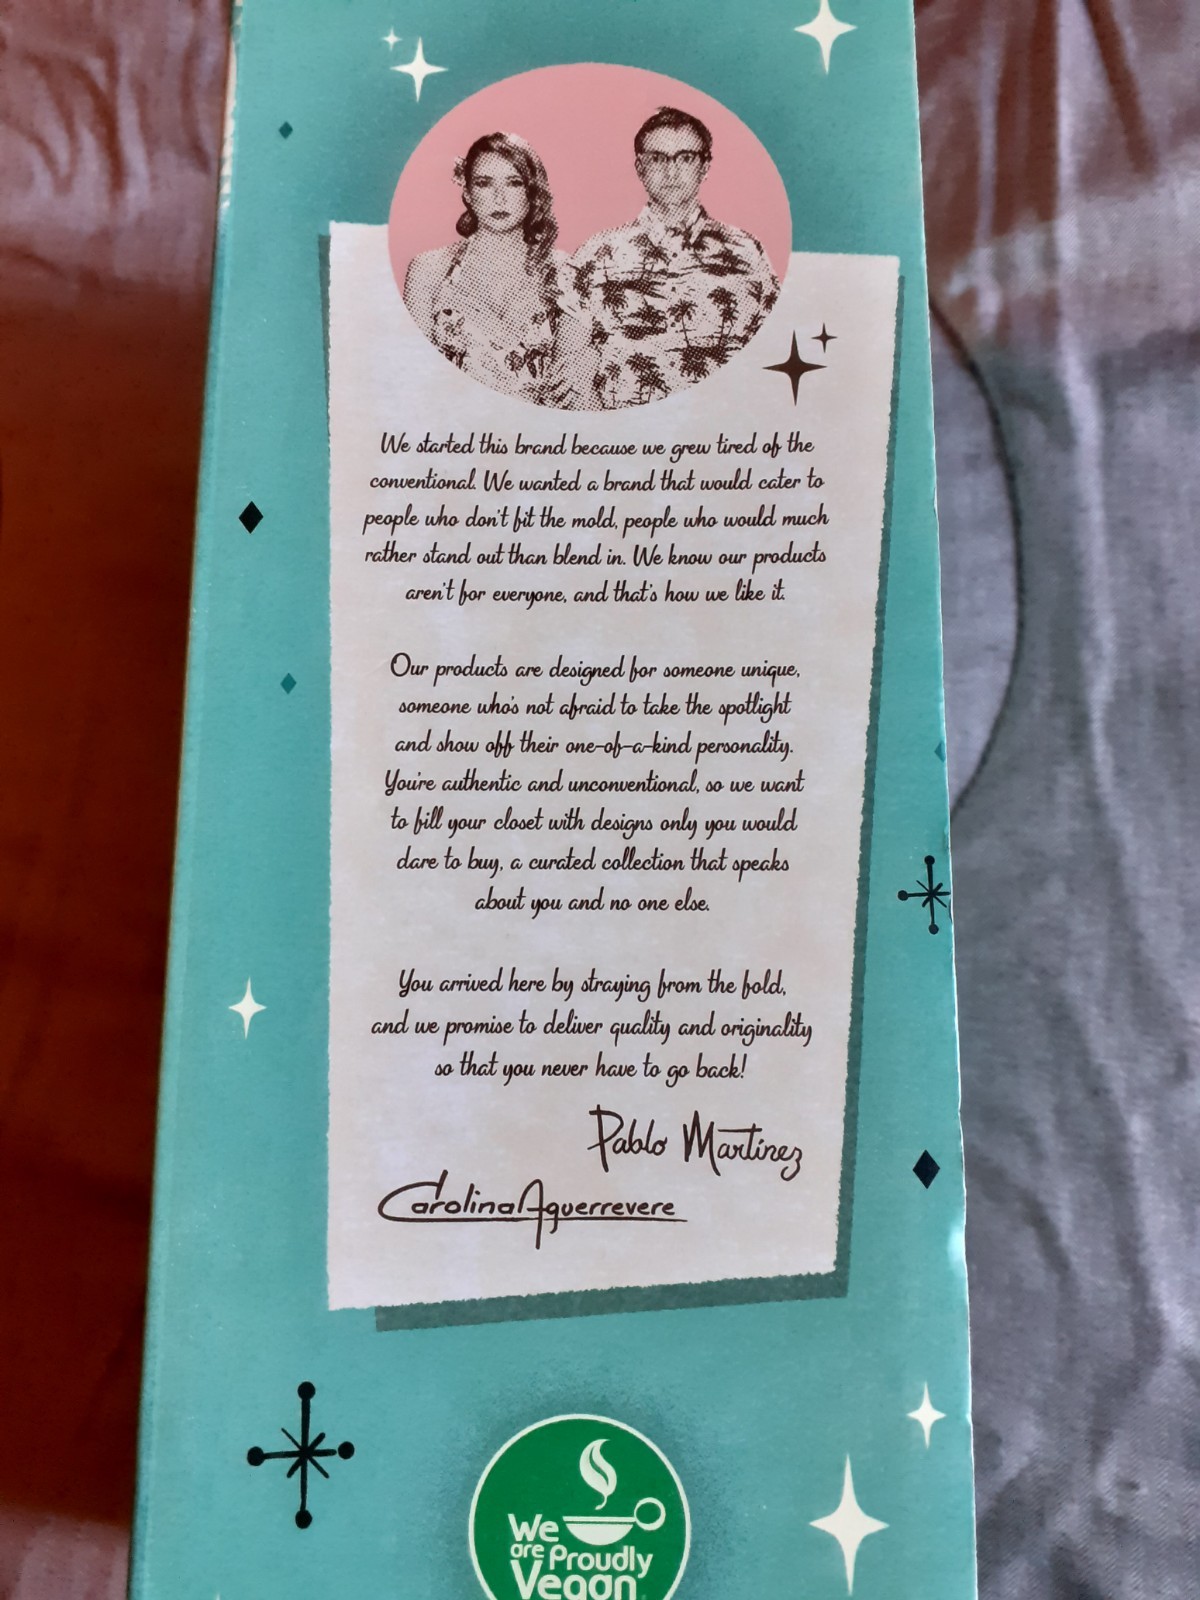 We started this brand because we grew tired of the
conventional. We wanted a brand that would cater to
people who don't fit the mold, people who would much
rather stand out than blend in. We know our products
aren't for everyone, and that's how we like it.
Our products are designed for someone unique,
someone who's not afraid to take the spotlight
and show off their one-of-a-kind personality.
You're authentic and unconventional, so we want
to fill your closet with designs only you would
dare to buy, a curated collection that speaks
about you and no one else.
You arrived here by straying from the fold,
and we promise to deliver quality and originality
so that you never have to go back!
Pablo Martínez
Carolina Aguerrevere
We
are Proudly
Vegan